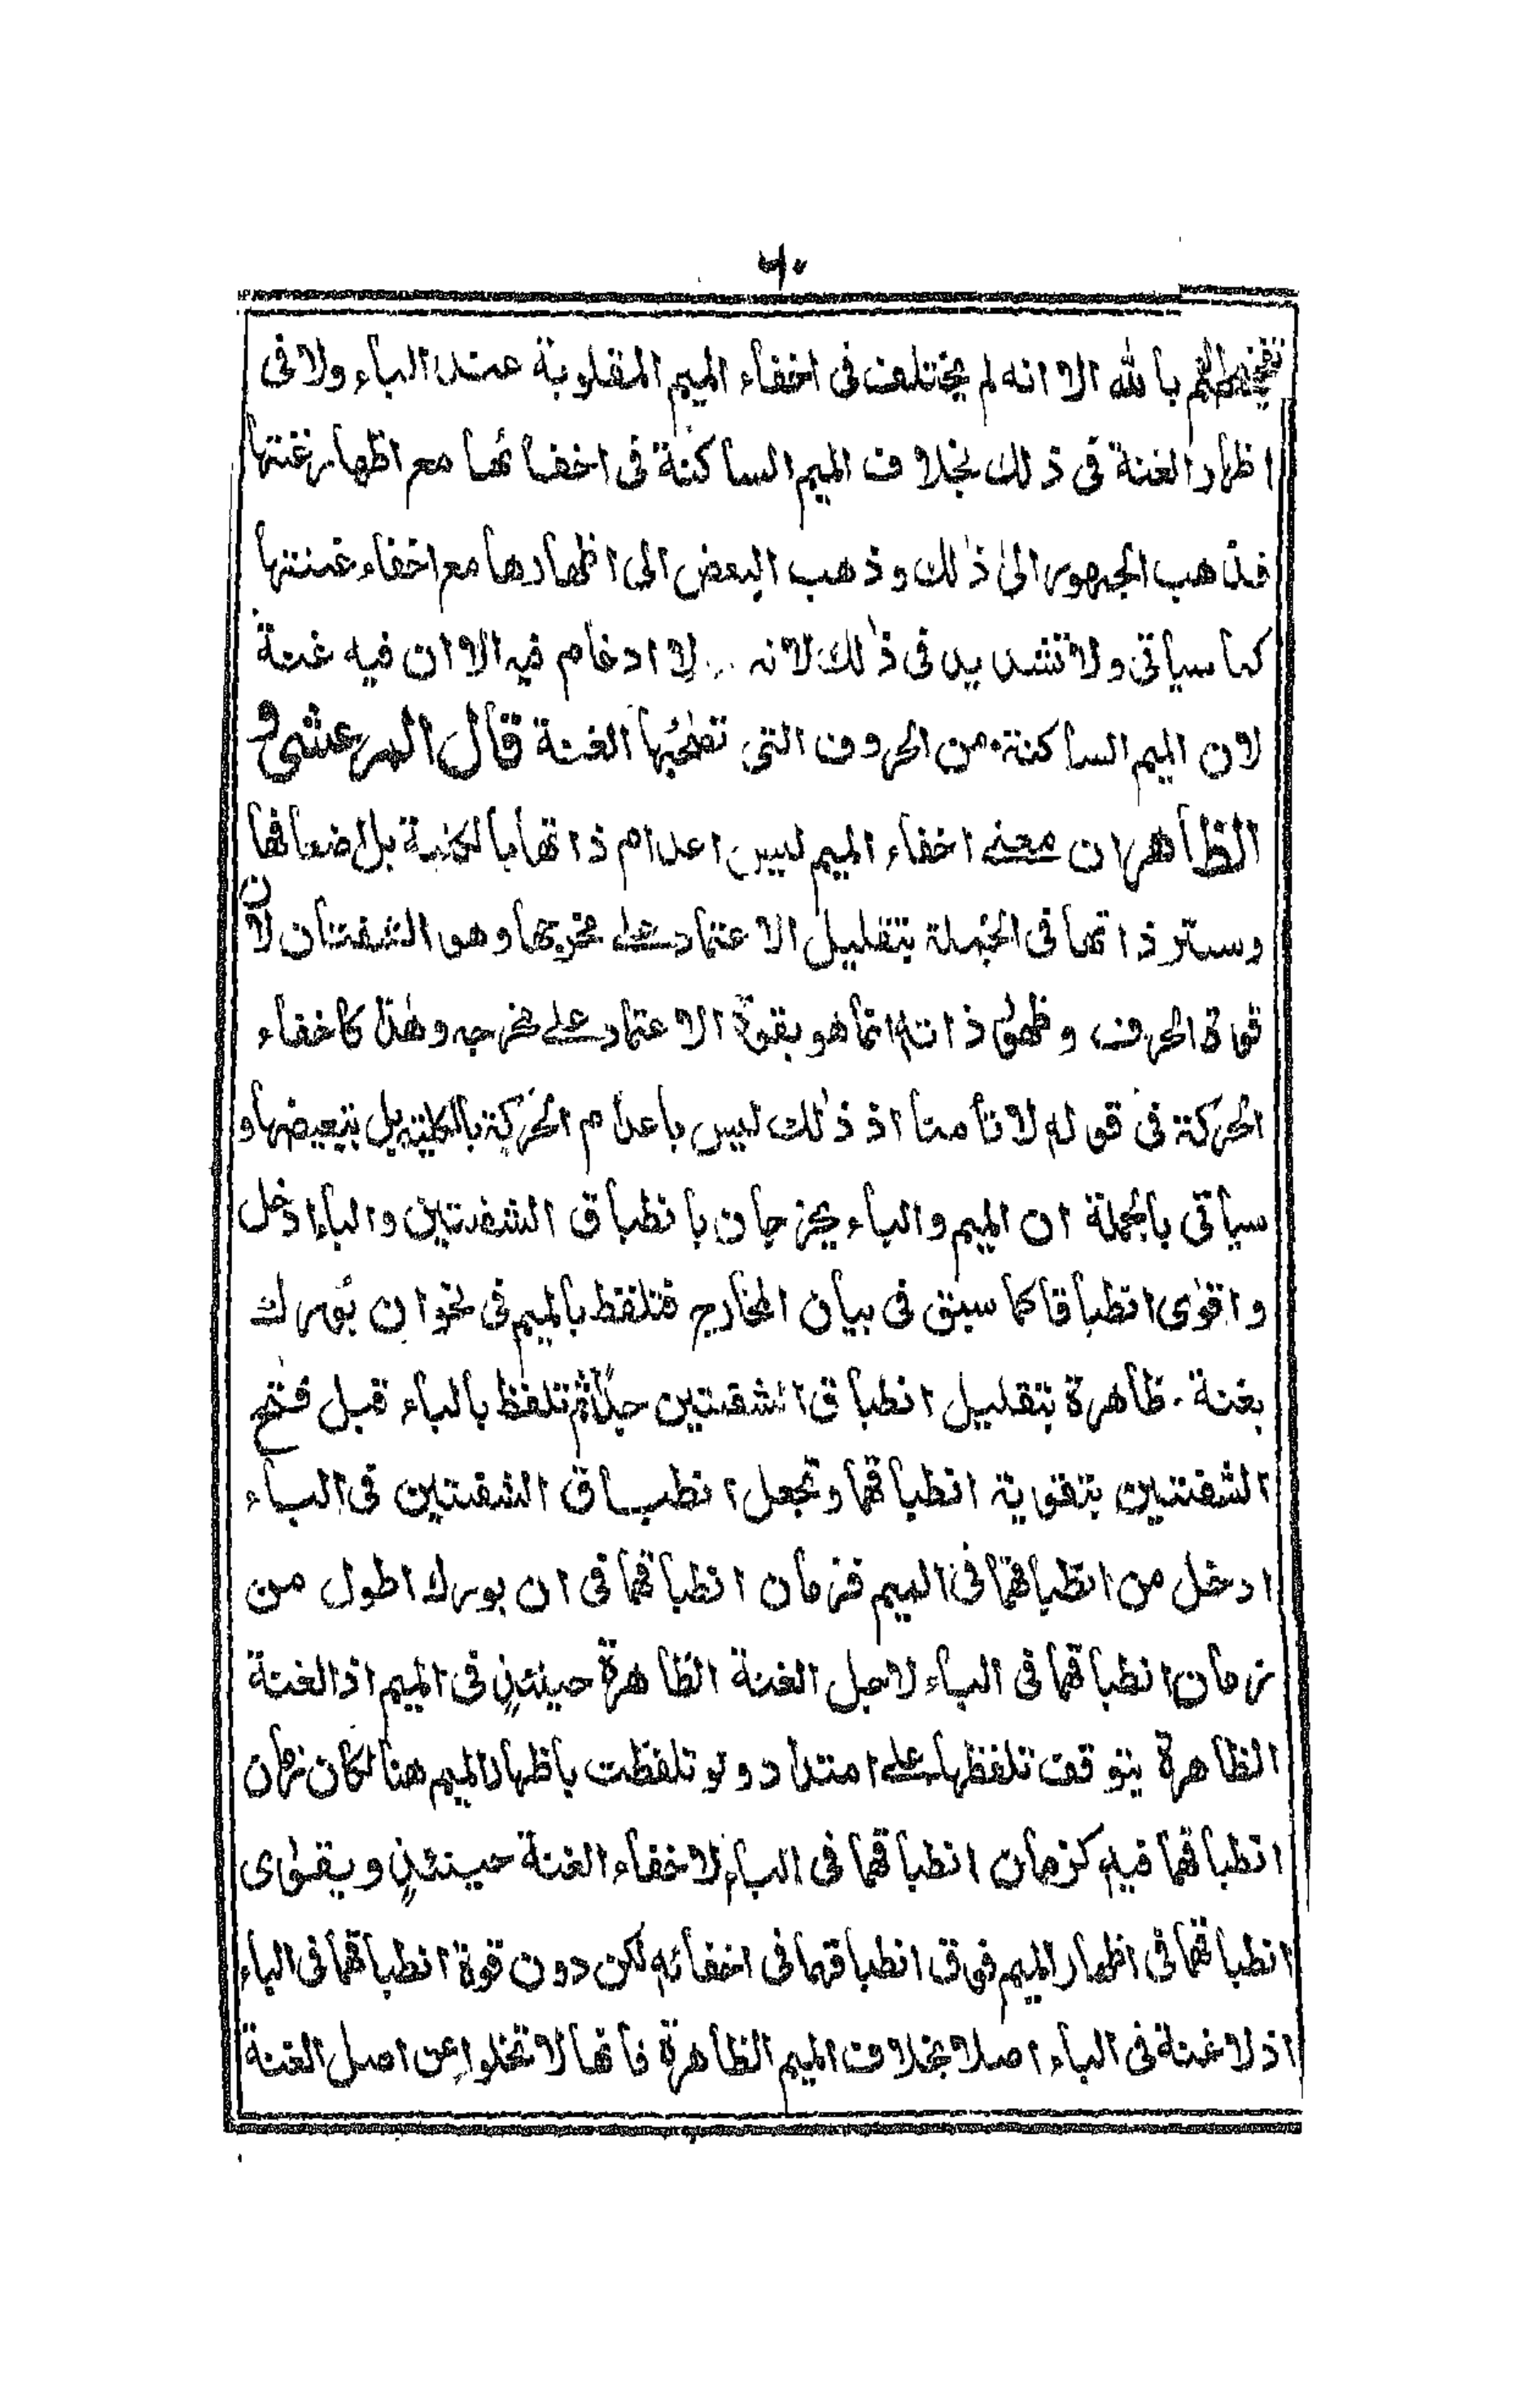 ٦٠
بالله الا انه لم يختلف فى اخفاء الميم المقلوبة عند الباء ولا فى
اظهار الغنة فى ذلك بخلاف الميم الساكنة فى اخفائها مع اظهار غنتها
فذهب الجمهور الىٰ ذٰلك وذهب البعض الى اظهارها مع اخفاء غنتها
كما سياتى ولا تشديد فى ذٰلك لانه لا ادغام فيه الا ان فيه غنة
لان الميم الساكنة من الحروف التى تصحبها الغنة قال المرعشى و
الظاهر ان معنى اخفاء الميم ليس اعدام ذاتها بالكلية بل اضعافها
وستر ذاتها فى الجملة بتقليل الاعتماد على مخرجها وهو الشفتان لان
قوة الحرف وظهور ذاته انما هو بقوة الاعتماد على مخرجه وهٰذا كاخفاء
الحركة فى قوله لا تأمنا اذ ذٰلك ليس باعدام الحركة بالكلية بل بتبعيضها و
سياتى بالجملة ان الميم والباء يخرجان بانطباق الشفتين والباء ادخل
واقوٰى انطباقا كما سبق فى بيان المخارج فتلفظ بالميم فى نحو ان بُورك
بغنة ظاهرة بتقليل انطباق الشفتين جدًّا ثم تلفظ بالباء قبل فتح
الشفتين بتقوية انطباقهما وتجعل انطباق الشفتين فى الباء
ادخل من انطباقهما فى الميم فزمان انطباقهما فى ان بورك اطول من
زمان انطباقهما فى الباء لاجل الغنة الظاهرة حينئذٍ فى الميم اذ الغنة
الظاهرة يتوقف تلفظها على امتداد ولو تلفظت باظهار الميم هنا لكان زمان
انطباقهما فيه كزمان انطباقهما فى الباء لاخفاء الغنة حينئذٍ ويقوٰى
انطباقهما فى اظهار الميم فوق انطباقهما فى اخفائه لكن دون قوة انطباقهما فى الباء
اذ لا غنة فى الباء اصلا بخلاف الميم الظاهرة فانها لا تخلوا عن اصل الغنة